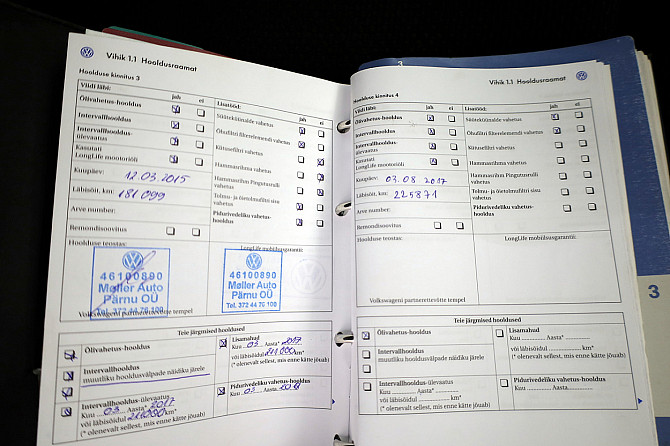 Vihik 1.1 Hooldusraamat
Hoolduse kinnitus 3
Viidi läbi: jah ei
Õlivahetus-hooldus
Intervallhooldus
Intervallhooldus-
ülevaatus
Kasutati
LongLife mootoriõli
Kuupäev: 12.03.2015
Läbisõit, km: 181 099
Arve number:
Remondisoovitus
Hoolduse teostas:
Lisatööd: jah ei
Süüteküünalde vahetus
Õhufiltri filterelemendi vahetus
Kütusefiltri vahetus
Hammasrihma vahetus
Hammasrihm Pingutusrulli
vahetus
Tolmu- ja õietolmufiltri sisu
vahetus
Pidurivedeliku vahetus-
hooldus
LongLife mobiilsusgarantii:
46100890
Møller Auto
Pärnu OÜ
Tel. 372 44 70 100
46100890
Møller Auto
Pärnu OÜ
Tel. 372 44 70 100
Volkswageni partnerettevõtte tempel
Teie järgmised hooldused
Õlivahetus-hooldus
Intervallhooldus
muutliku hooldusvälpade näidiku järele
Intervallhooldus-ülevaatus
Kuu 03 Aasta* 2017
või läbisõidul 211000 km*
(* olenevalt sellest, mis enne kätte jõuab)
Lisamahud
Kuu 03 Aasta* 2017
või läbisõidul 211000 km*
(* olenevalt sellest, mis enne kätte jõuab)
Pidurivedeliku vahetus-hooldus
Kuu 03 Aasta
Vihik 1.1 Hooldusraamat
Hoolduse kinnitus 4
Viidi läbi: jah ei
Õlivahetus-hooldus
Intervallhooldus
Intervallhooldus-
ülevaatus
Kasutati
LongLife mootoriõli
Kuupäev: 03.08.2017
Läbisõit, km: 225871
Arve number:
Remondisoovitus
Hoolduse teostas:
Lisatööd: jah ei
Süüteküünalde vahetus
Õhufiltri filterelemendi vahetus
Kütusefiltri vahetus
Hammasrihma vahetus
Hammasrihm Pingutusrulli
vahetus
Tolmu- ja õietolmufiltri sisu
vahetus
Pidurivedeliku vahetus-
hooldus
LongLife mobiilsusgarantii:
Volkswageni partnerettevõtte tempel
Teie järgmised hooldused
Õlivahetus-hooldus
Intervallhooldus
muutliku hooldusvälpade näidiku järele
Intervallhooldus-ülevaatus
Kuu Aasta*
või läbisõidul km*
(* olenevalt sellest, mis enne kätte jõuab)
Lisamahud
Kuu Aasta*
või läbisõidul km*
(* olenevalt sellest, mis enne kätte jõuab)
Pidurivedeliku vahetus-hooldus
Kuu Aasta
3
3